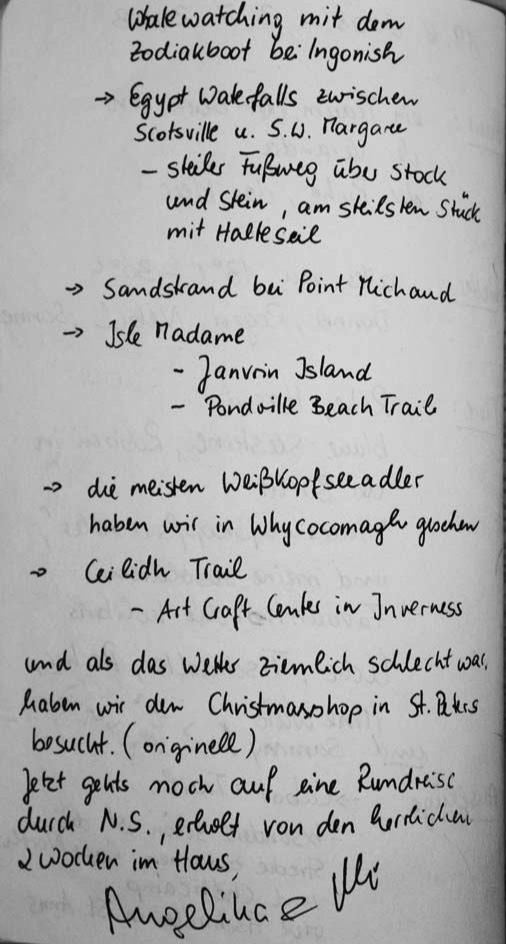 Whalewatching mit dem
Zodiakboot bei Ingonish
→ Egypt Waterfalls zwischen
Scotsville u. S.W. Margaree
- steiler Fußweg über Stock
und Stein, am steilsten Stück
mit Halteseil
→ Sandstrand bei Point Michaud
→ Isle Madame
- Janvrin Island
- Pondville Beach Trail
→ die meisten Weißkopfseeadler
haben wir in Whycocomagh gesehen
→ Ceilidh Trail
- Art Craft Center in Inverness
und als das Wetter ziemlich schlecht war,
haben wir den Christmasshop in St. Peters
besucht. (originell)
Jetzt gehts noch auf eine Rundreise
durch N.S., erholt von den herrlichen
2 Wochen im Haus,
Angelika &